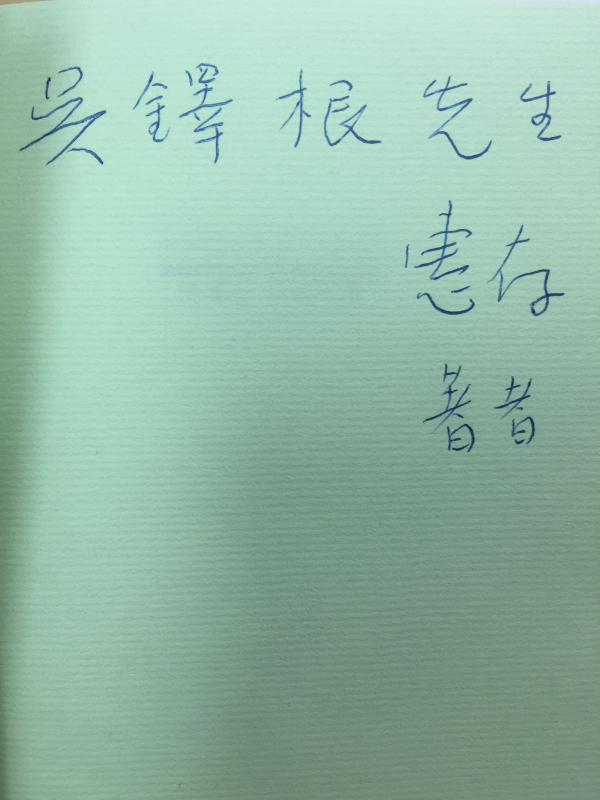 吳鐸根先生
惠存
著者